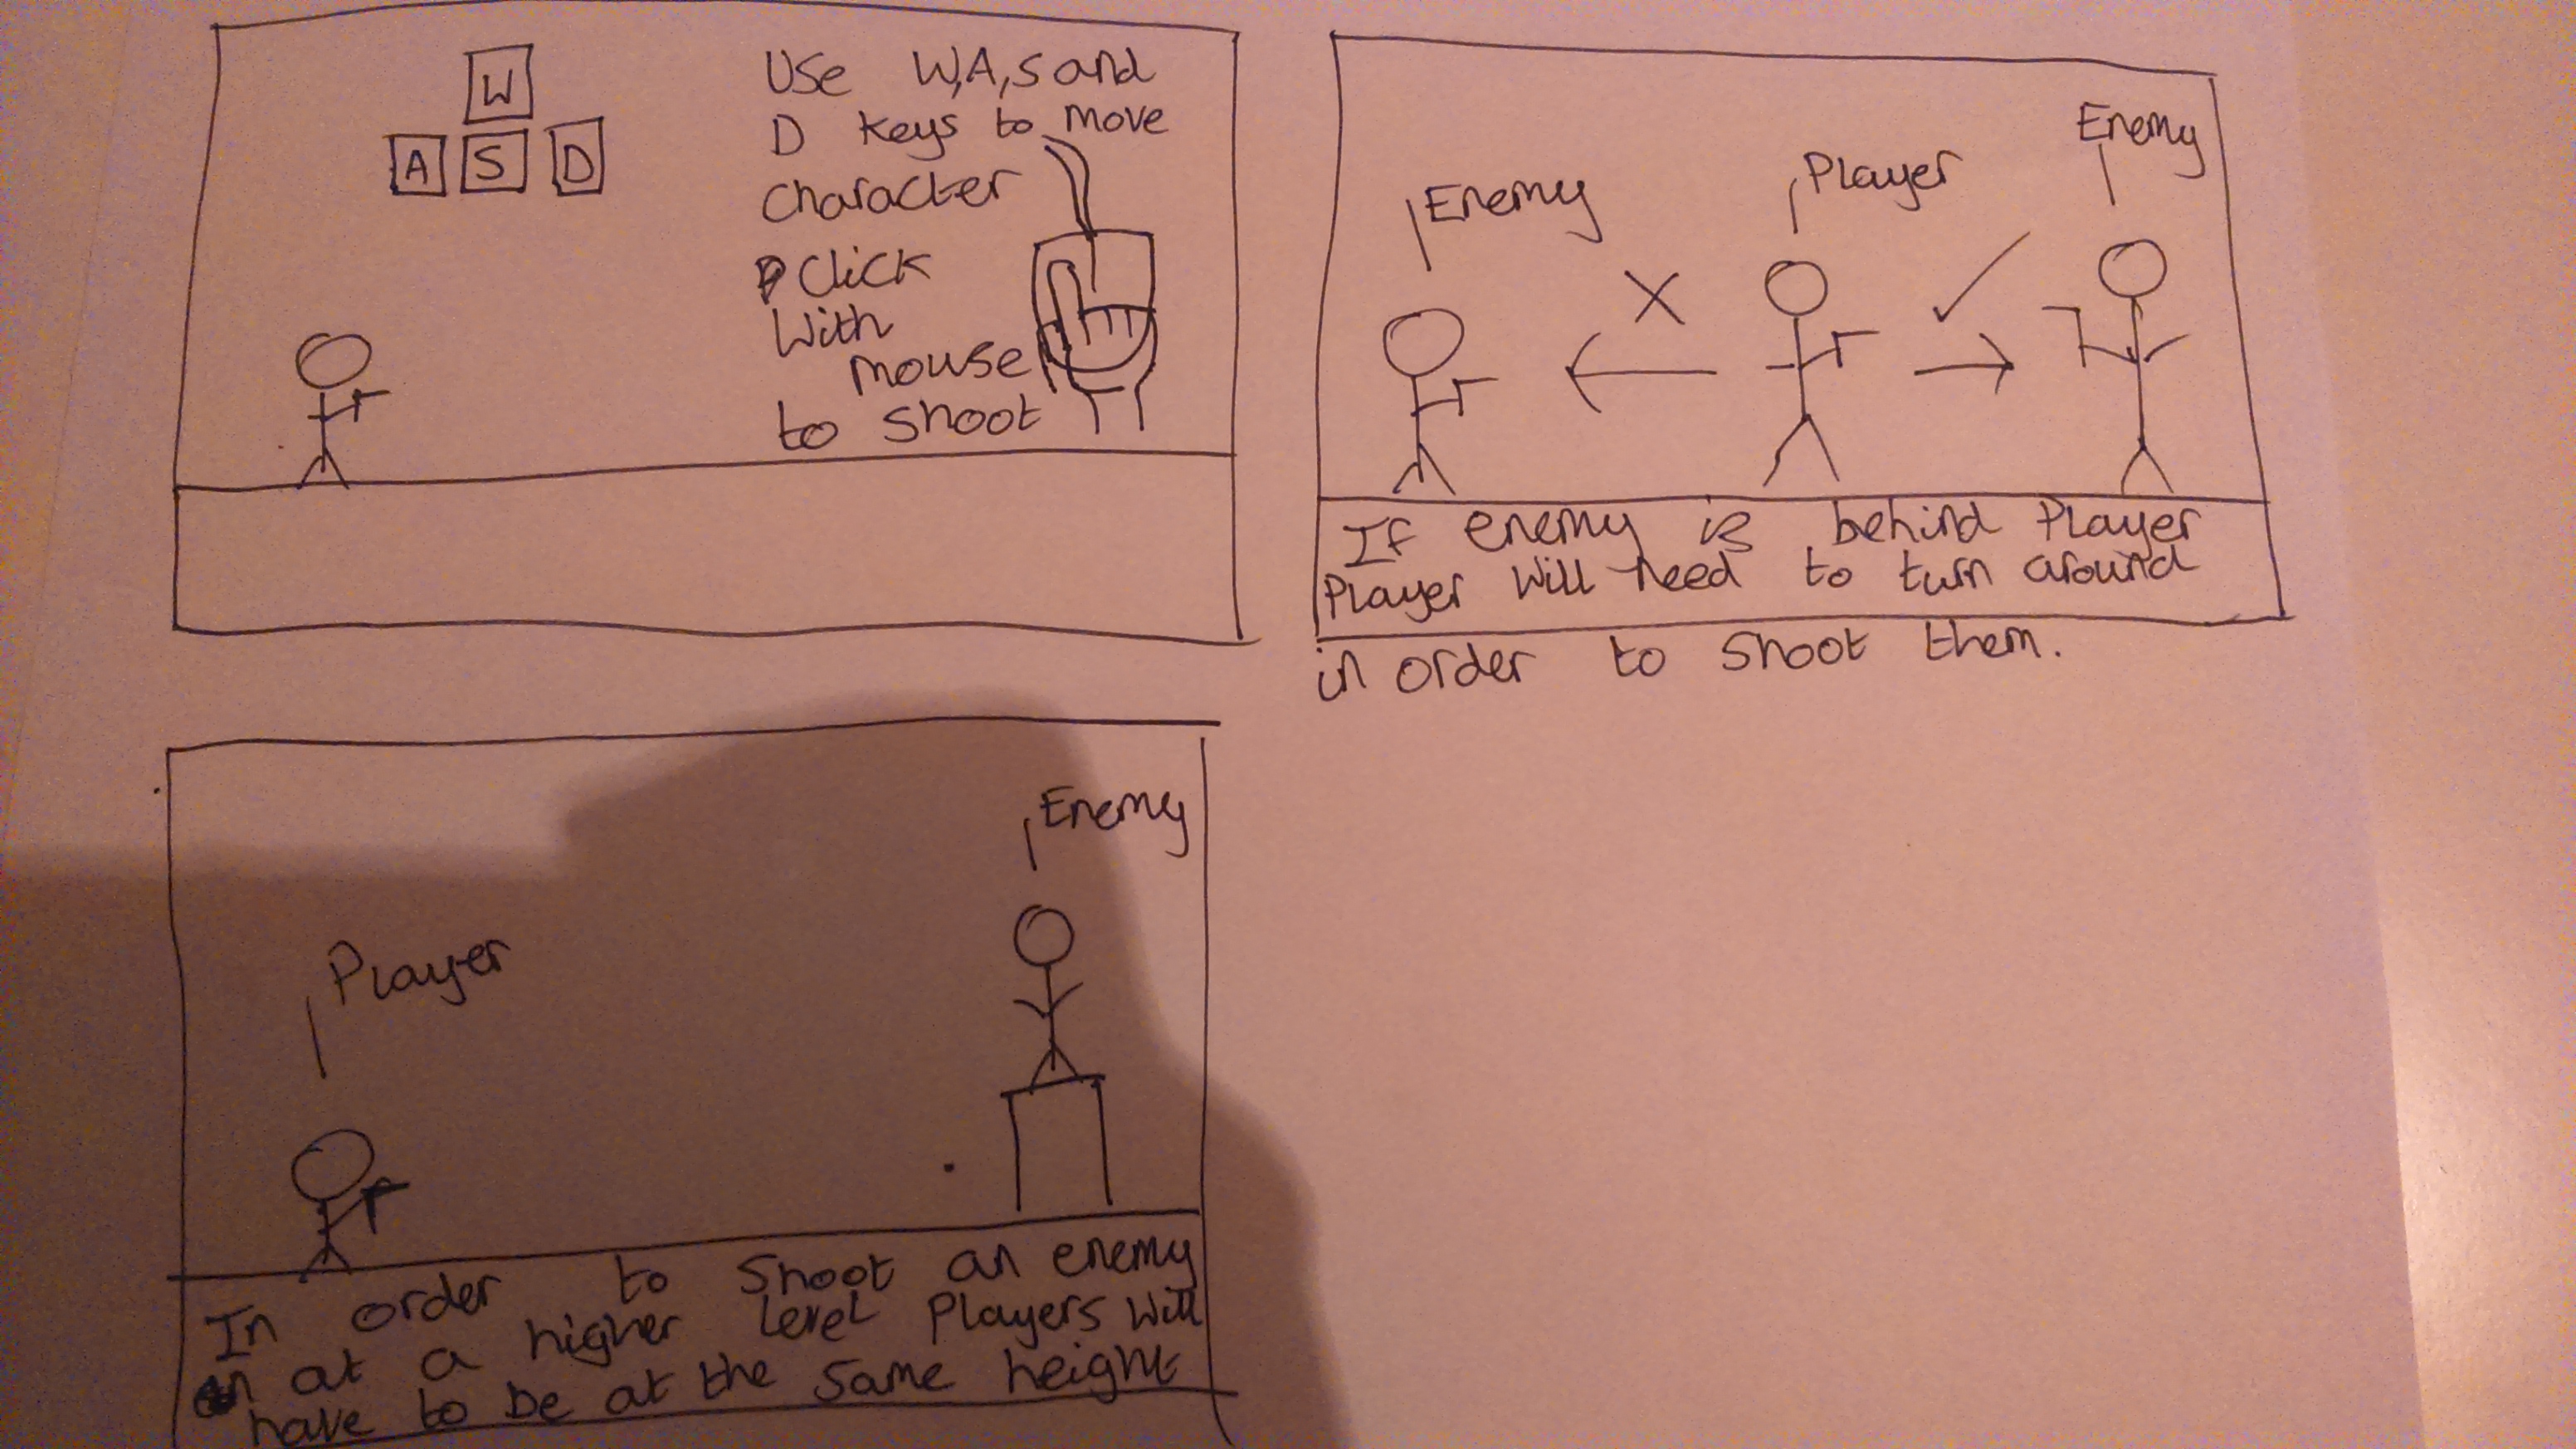 W
A S D
Use W,A,S and
D keys to move
character
Click
With
mouse
to shoot
Enemy
Player
Enemy
If enemy is behind Player
Player will need to turn around
in order to shoot them.
Enemy
Player
In order to shoot an enemy
at a higher level Players will
have to be at the same height